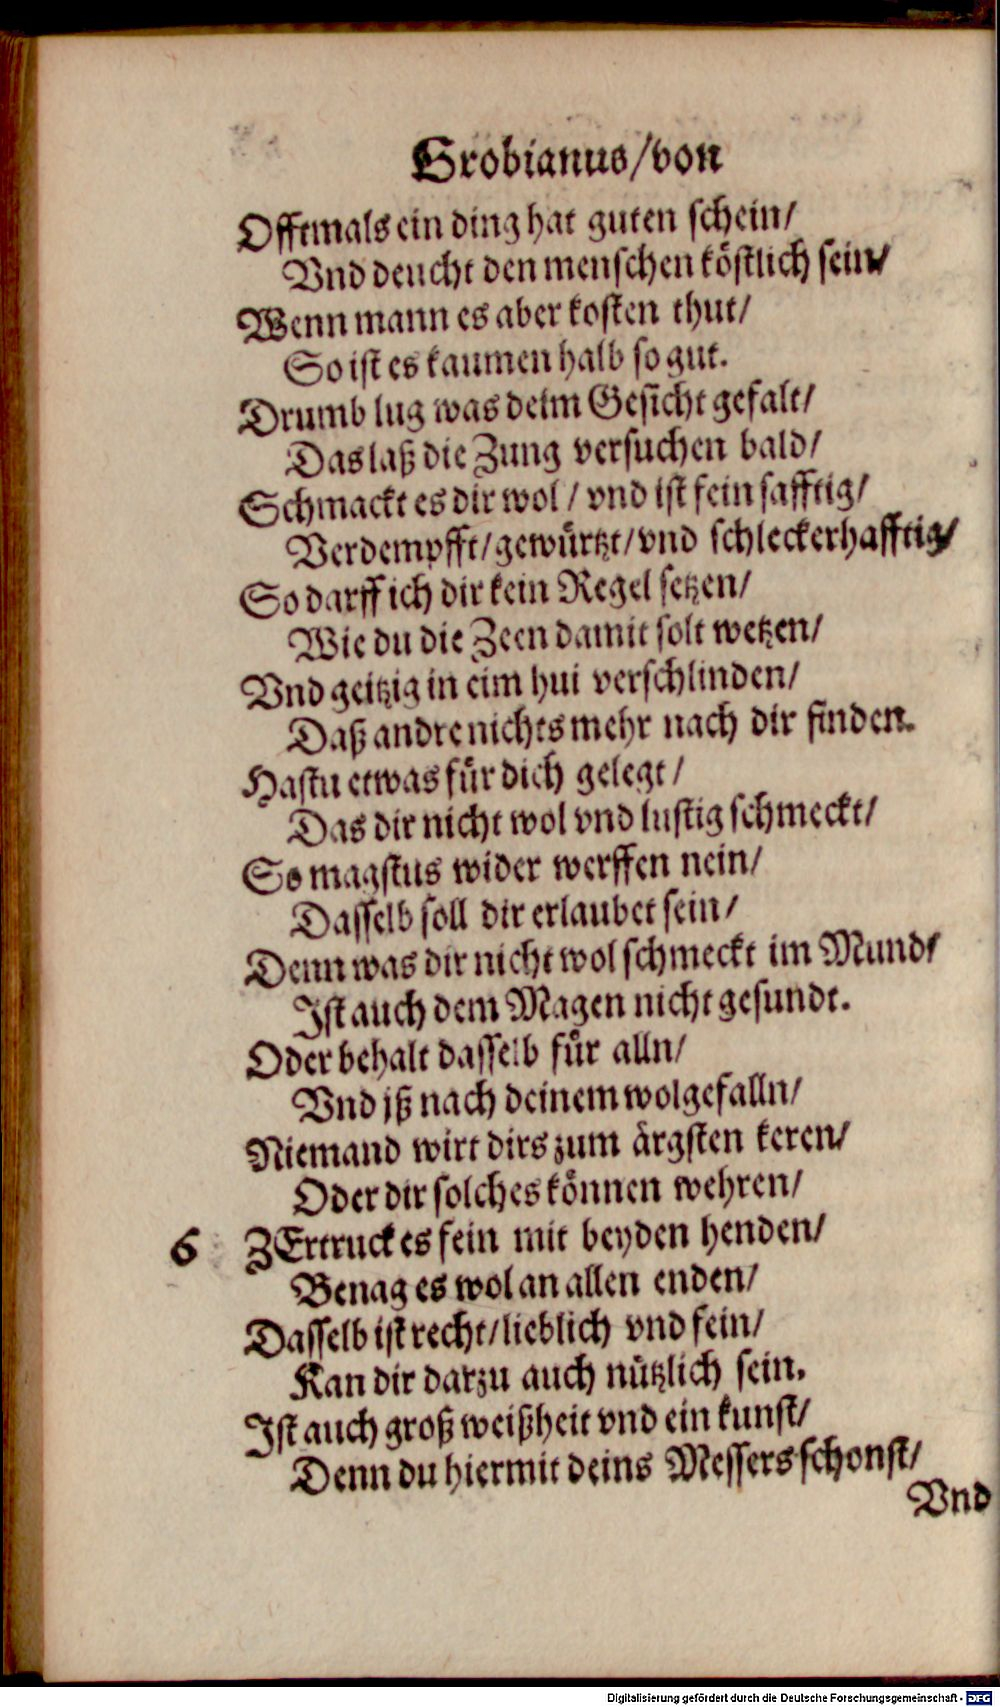 Grobianus/von
Offtmals ein ding hat guten schein/
Vnd deucht den menschen köstlich sein/
Wenn mann es aber kosten thut/
So ist es kaumen halb so gut.
Drumb lug was deim Gesicht gefalt/
Das laß die Zung versuchen bald/
Schmackt es dir wol / vnd ist fein safftig/
Verdempfft/gewürtzt/vnd schleckerhafftig/
So darff ich dir kein Regel setzen/
Wie du die Zeen damit solt wetzen/
Vnd geitzig in eim hui verschlinden/
Daß andre nichts mehr nach dir finden.
Hastu etwas für dich gelegt /
Das dir nicht wol vnd lustig schmeckt/
So magstus wider werffen nein/
Dasselb soll dir erlaubet sein/
Denn was dir nicht wol schmeckt im Mund/
Ist auch dem Magen nicht gesundt.
Oder behalt dasselb für alln/
Vnd jß nach deinem wolgefalln/
Niemand wirt dirs zum ärgsten keren/
Oder dir solches können wehren/
6 ZErtruck es fein mit beyden henden/
Benag es wol an allen enden/
Dasselb ist recht/lieblich vnd fein/
Kan dir darzu auch nützlich sein.
Ist auch groß weißheit vnd ein kunst/
Denn du hiermit deins Messers schonst/
Vnd
Digitalisierung gefördert durch die Deutsche Forschungsgemeinschaft - DFG